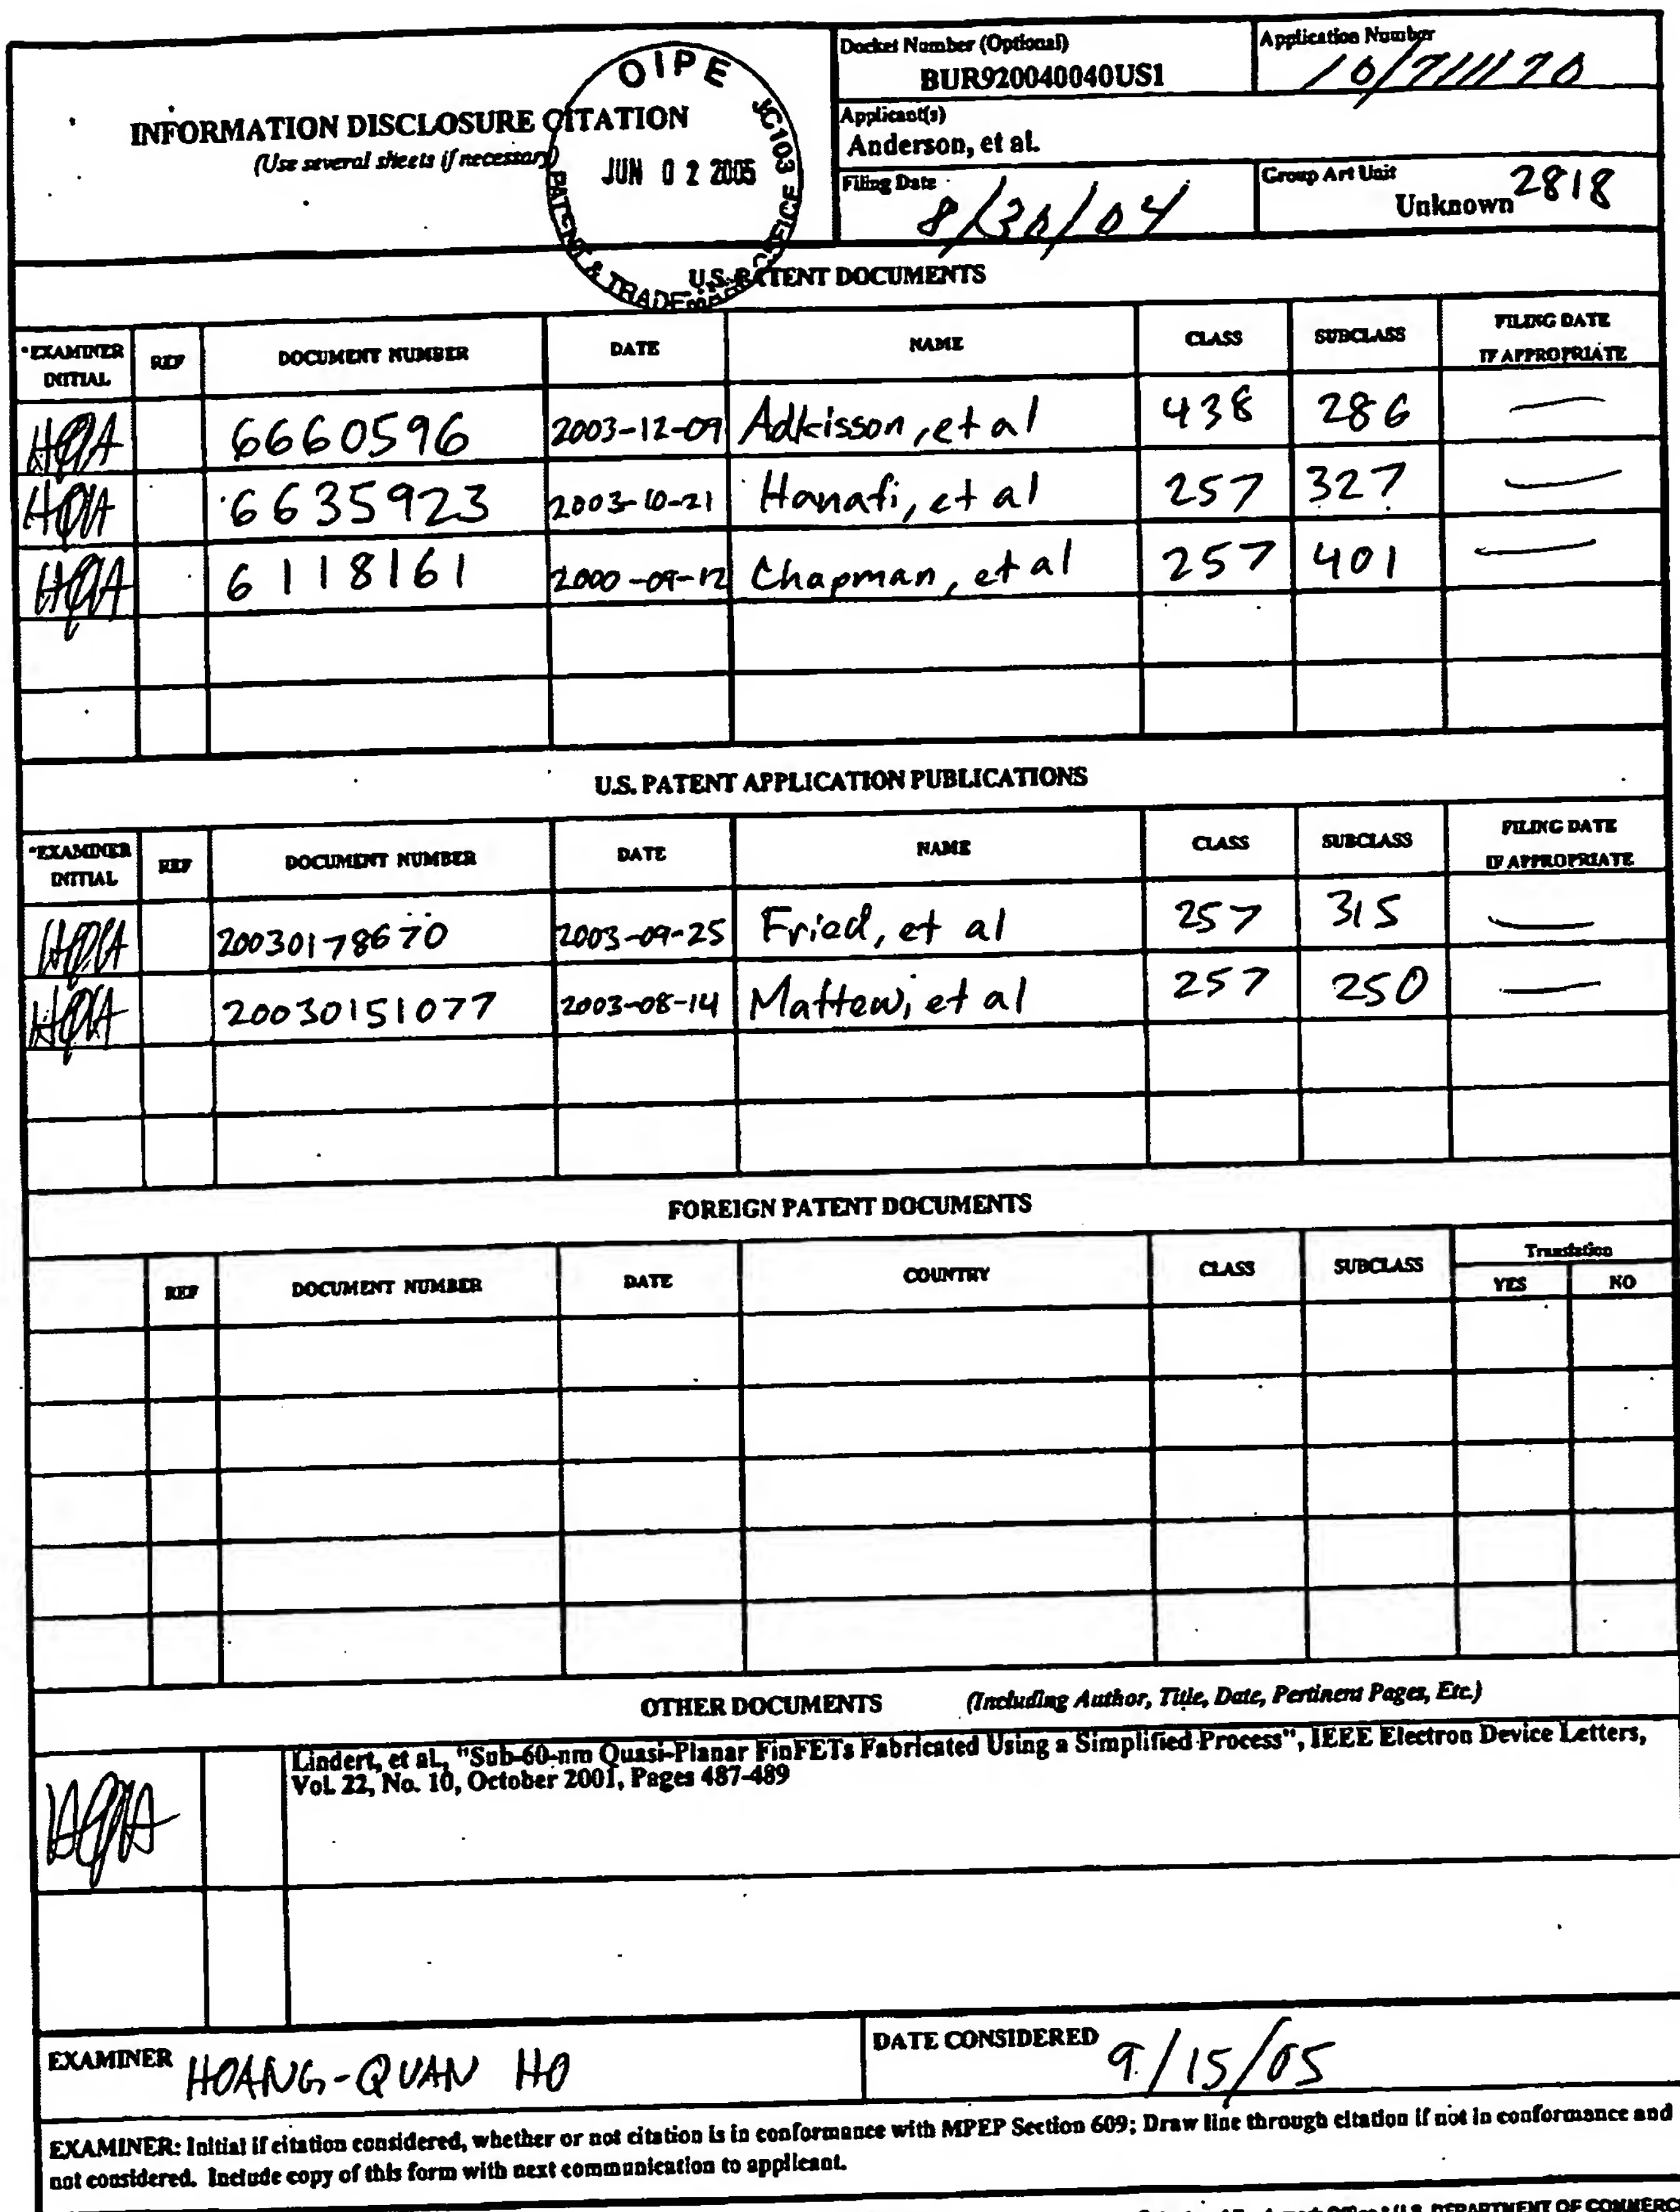 Docket Number (Optional)
BUR920040040US1
Application Number
10/711170
INFORMATION DISCLOSURE CITATION
(Use several sheets if necessary)
OIPE
JC103
JUN 02 2005
PATENT & TRADEMARK OFFICE
Applicant(s)
Anderson, et al.
Filing Date
8/30/04
Group Art Unit
Unknown 2818
U.S. PATENT DOCUMENTS
*EXAMINER INITIAL REF DOCUMENT NUMBER DATE NAME CLASS SUBCLASS FILING DATE IF APPROPRIATE
6660596 2003-12-09 Adkisson, et al 438 286 —
6635923 2003-10-21 Hanafi, et al 257 327 —
6118161 2000-09-12 Chapman, et al 257 401 —
U.S. PATENT APPLICATION PUBLICATIONS
*EXAMINER INITIAL REF DOCUMENT NUMBER DATE NAME CLASS SUBCLASS FILING DATE IF APPROPRIATE
20030178670 2003-09-25 Fried, et al 257 315 —
20030151077 2003-08-14 Mattew, et al 257 250 —
FOREIGN PATENT DOCUMENTS
REF DOCUMENT NUMBER DATE COUNTRY CLASS SUBCLASS Translation YES NO
OTHER DOCUMENTS (Including Author, Title, Date, Pertinent Pages, Etc.)
Lindert, et al., "Sub-60-nm Quasi-Planar FinFETs Fabricated Using a Simplified Process", IEEE Electron Device Letters,
Vol. 22, No. 10, October 2001, Pages 487-489
EXAMINER HOANG-QUAN HO
DATE CONSIDERED 9/15/05
EXAMINER: Initial if citation considered, whether or not citation is in conformance with MPEP Section 609; Draw line through citation if not in conformance and
not considered. Include copy of this form with next communication to applicant.